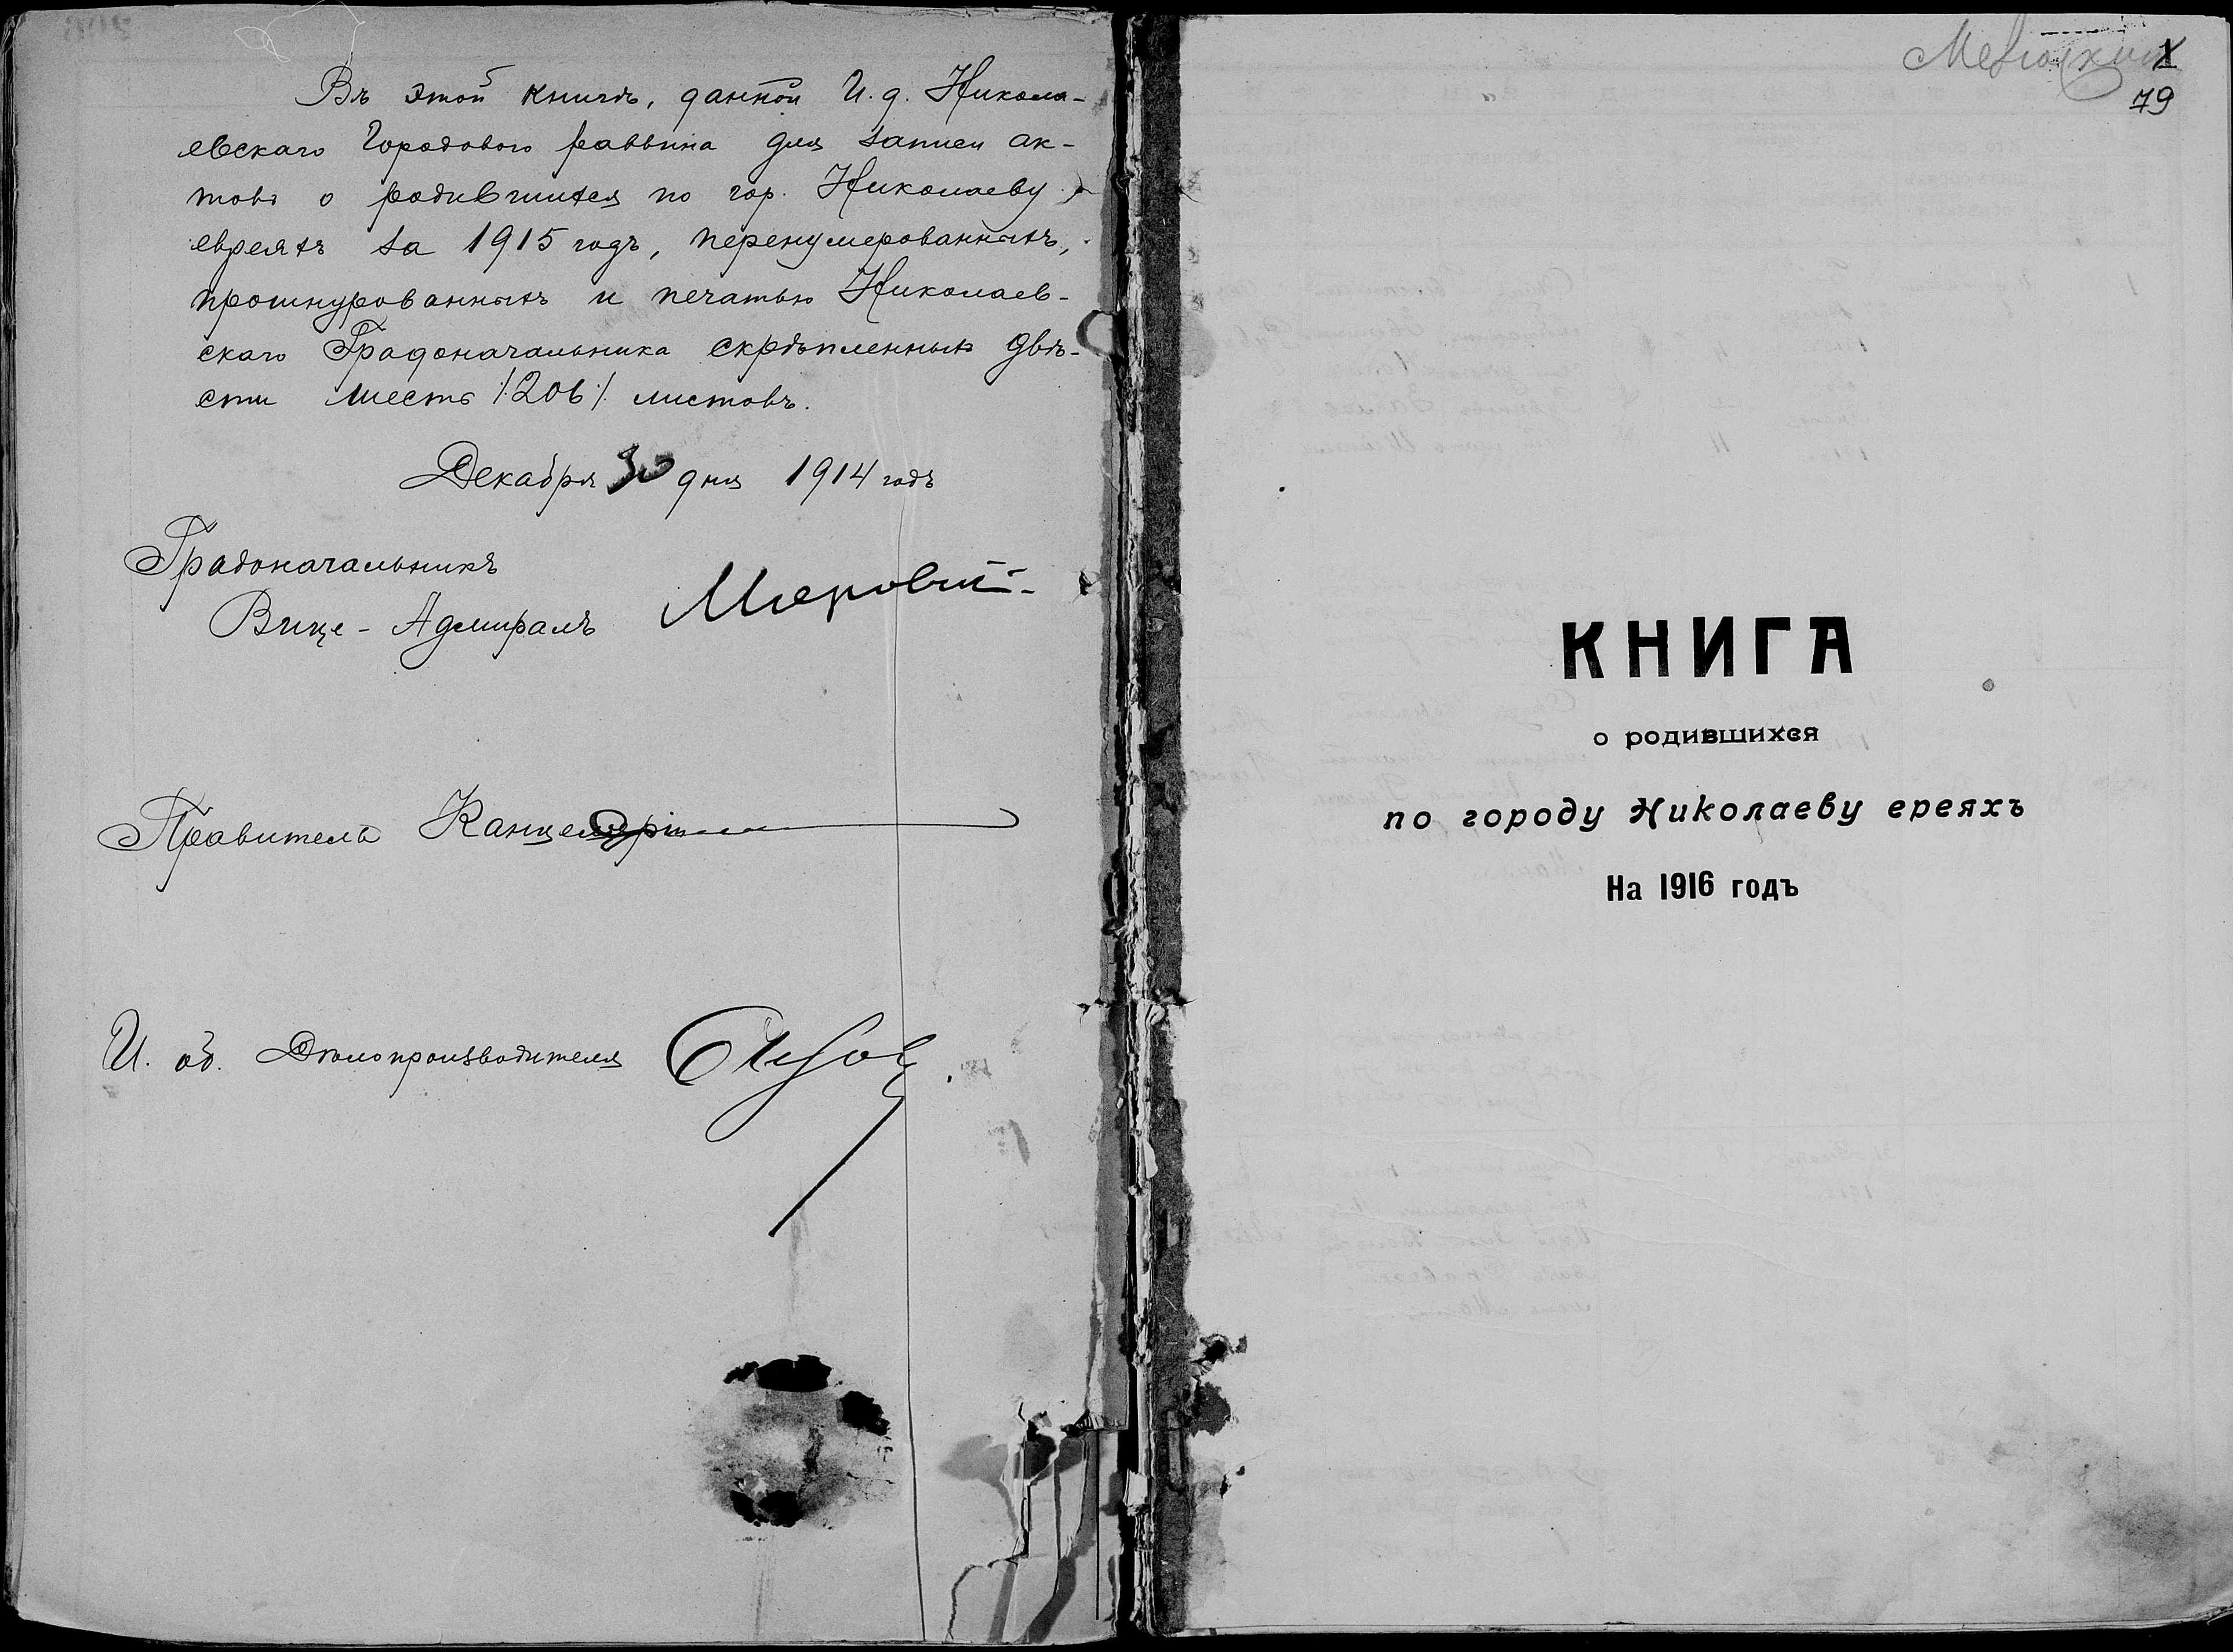 Въ этой книгѣ, данной И. д. Никола-
евскаго Городового раввина для записи ак-
товъ о родившихся по гор. Николаеву
евреяхъ за 1915 годъ, перенумерованныхъ,
прошнурованныхъ и печатью Николаев-
скаго Градоначальника скрѣпленныхъ двѣ-
сти шесть /:206:/ листовъ.
Декабря 30 дня 1914 годъ
Градоначальникъ
Вице-Адмиралъ
Правитель Канцеляріи
И. об. Дѣлопроизводителя
79
КНИГА
о родившихся
по городу Николаеву ереяхъ
На 1916 годъ